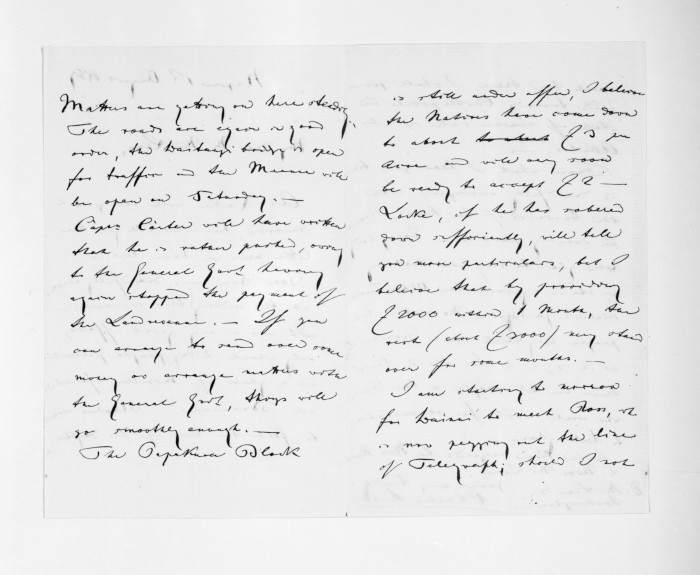 Matters are getting on here steadily.
The roads are again in good
order, the Waitangi bridge is open
for traffic & the Meanee will
be open on Saturday. —
Capt. Carter will have written
that he is rather pushed, owing
to the General Govt. having
again stopped the payment of
the Land revenue. — If you
can arrange to send over some
money or arrange matters with
the General Govt, things will
go smoothly enough. —
The Papakura Block
is still under offer, I believe
the Natives have come down
to about £3 per
Acre & will very soon
be ready to accept £2 —
Locke, if he has sobered
down sufficiently, will tell
you more particulars, but I
believe that by providing
£2000 within 1 Month, the
rest (about £2000) may stand
over for some months. —
I am starting to morrow
for Wainui to meet Ross, who
is now pegging out the line
of Telegraph; should I not